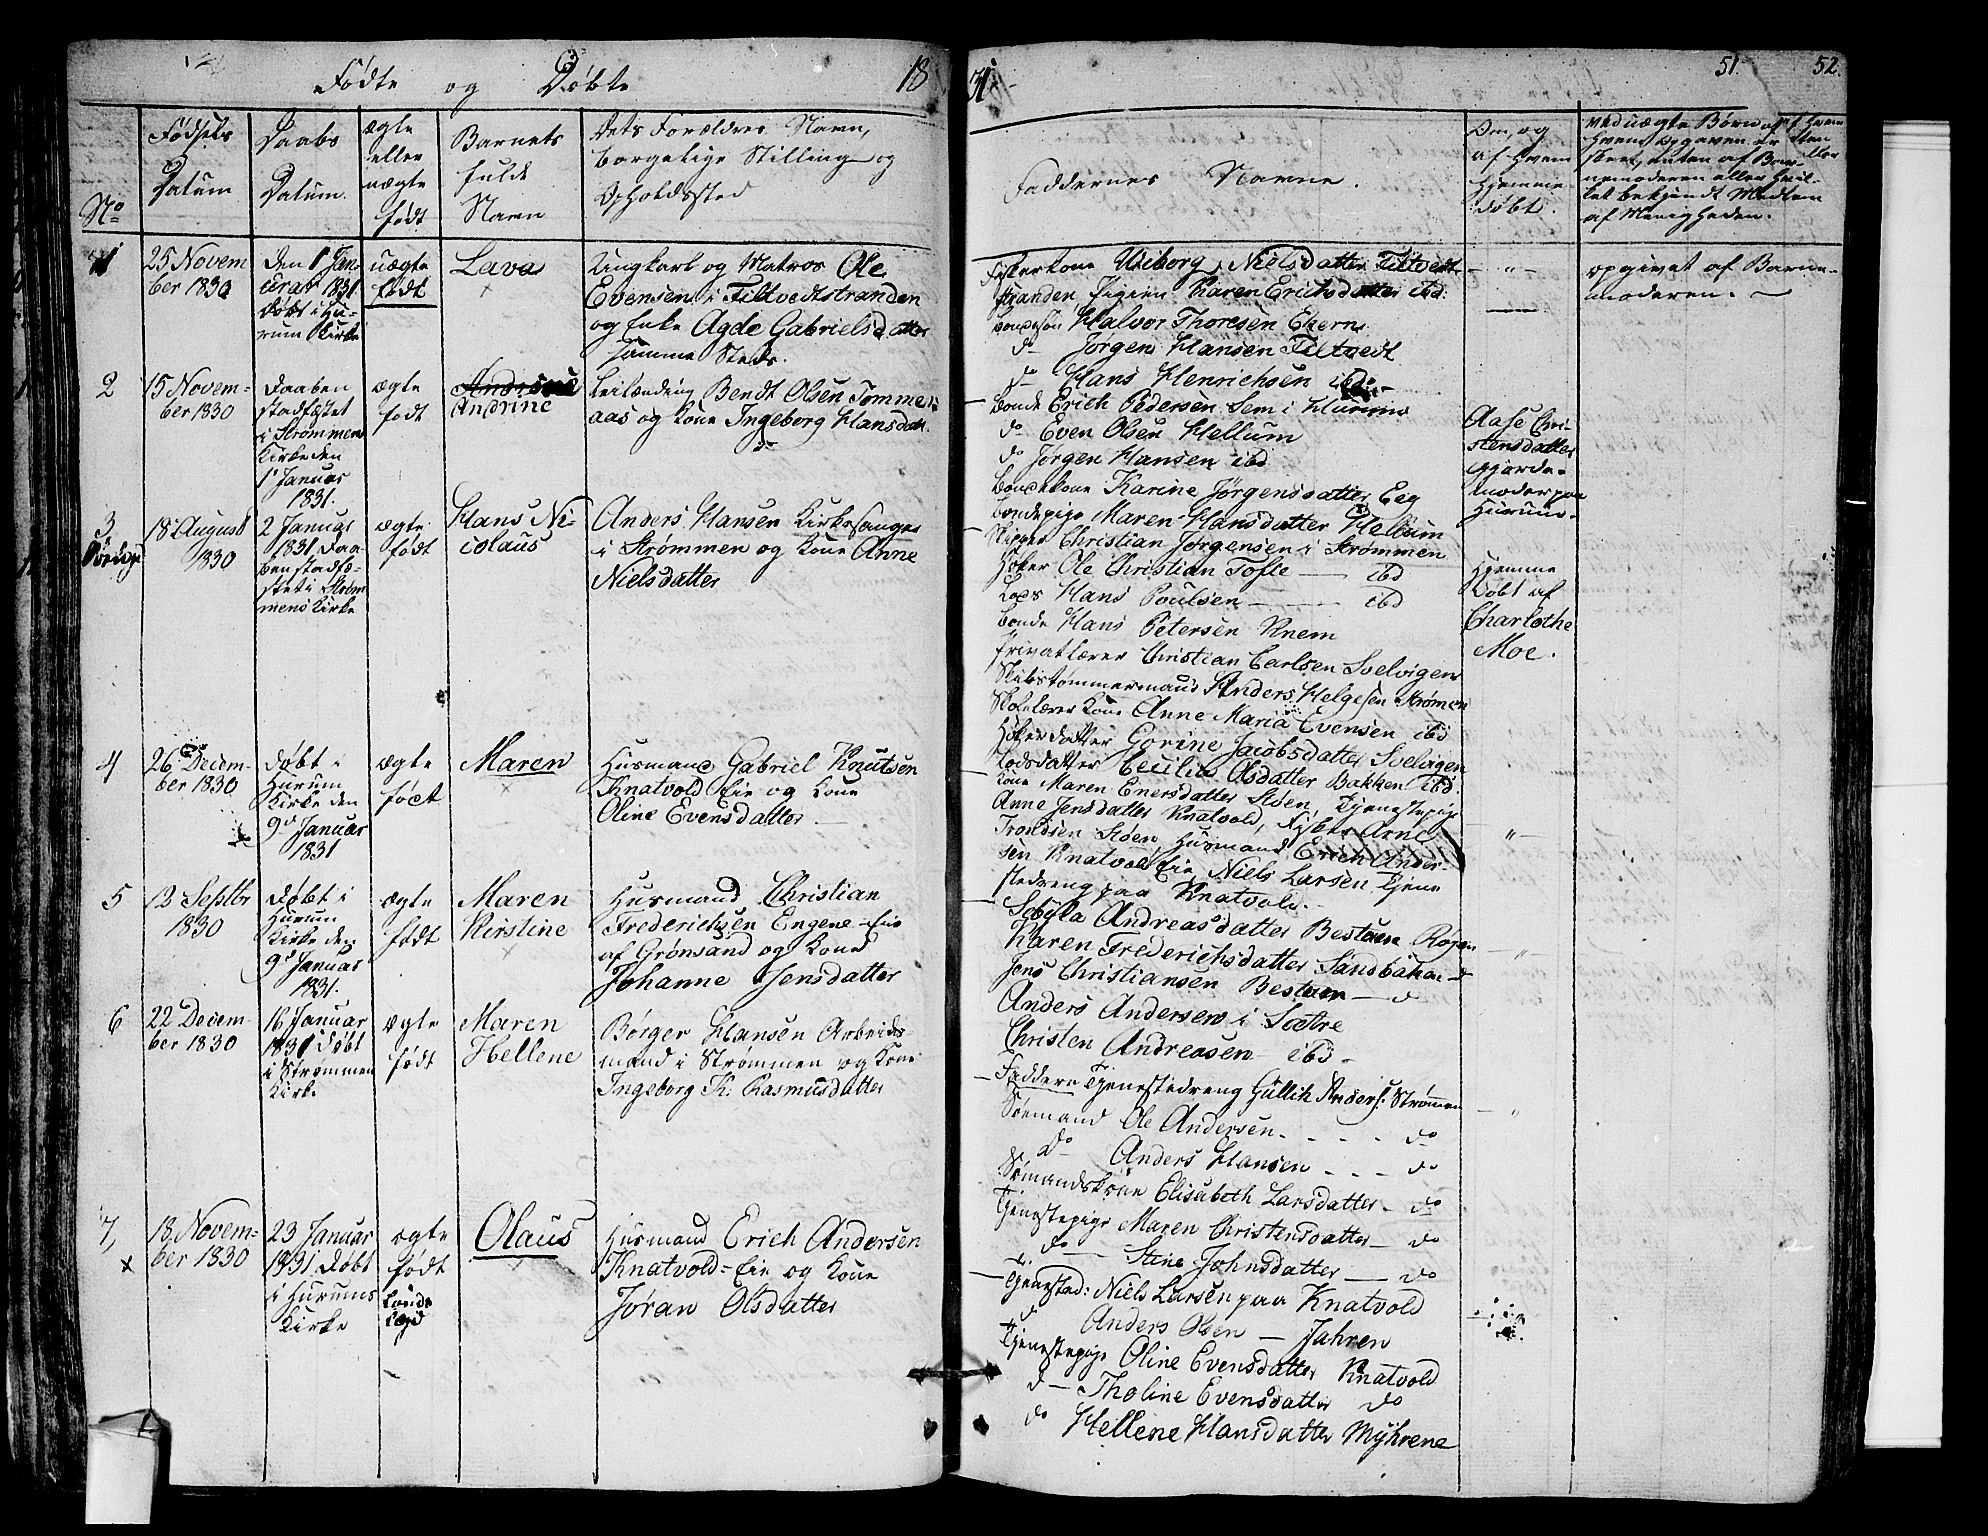 Fødte og Døbte 18
31.
51.
52.
No
Fødsels
Datum
Daabs
Datum.
ægte
eller
uægte
født
Barnets
fulde
Navn
Dets Forældres Navn,
borgelige Stilling og
Opholdssted
Faddernes Navne.
Om, og
af hvem
hjemme-
døbt.
Med uægte Børn
hvem opgaven er
skeet, enten af Bar-
nemoderen eller hvil-
ket bekjendt Medlem
af Menigheden.
1
25 Novem
ber 1830
den 1 Jan-
uar 1831
døbt i Hu-
rum Kirke
uægte
født
Lava
Ungkarl og Matros Ole
Evensen i Filtvedtstranden
og Enke Agde Gabrielsdatter
samme Steds.
Fiskerkone Wiborg Nielsdatter Filtvedt-
stranden, Pigen Karen Erichsdatter ibd:
Bondesøn Halvor Thoresen Ekern
do Jørgen Hansen Filtvedt
do Hans Henrichsen ibd.
opgivet af Barne-
moderen.
2
15 Novem-
ber 1830
Daaben
stadfæstet
i Strømmen
Kirke den
1 Januar
1831.
ægte
født
Andrine
Leilending Bendt Olsen Tømmer-
aas og Kone Ingeborg Hansdatt.
Bonde Erich Pedersen Sem i Hurum
do Even Olsen Hellum
do Jørgen Hansen ibd
Bondekone Karine Jørgensdatter Eeg
Bondepige Maren Hansdatter Hellum
Aase Chri-
stensdatter
Gjorde-
moder paa
Hurum.
3
18 August
1830
2 Januar
1831, Daa-
ben stadfæ-
stet i Strøm-
mens Kirke
ægte
født
Hans Ni-
colaus
Anders Hansen Kirkesanger
i Strømmen og Kone Anne
Nielsdatter
Skipper Christian Jørgensen i Strømmen
Høker Ole Christian Tofte — ibd
Lods Hans Poulsen — ibd
Bonde Hans Petersen Knem
Privatlærer Christian Carlsen Svelvigen
Skibstømmermand Anders Helgesen Strømen
Skolelærer Kone Anne Maria Evensen ibd
Høkerdatter Gorine Jacobsdatter Svelvigen
Lodsdatter Cecilia Olsdatter Bakken ibd.
Hjemme
døbt af
Charlothe
Moe.
4
26 Decem-
ber 1830
døbt i
Hurum
Kirke den
9d Januar
1831
ægte
født
Maren
Husmand Gabriel Knutsen
Knatvold Eie og Kone
Oline Evensdatter
Kone Maren Enersdatter Stoen, Tjenestepige
Anne Jensdatter Knatvold, Arne
Trondsen Stoen, Husmand Erich Ander-
sen Knatvold Eie, Niels Larsen Tjene
stedreng paa Knatvold.
5
13 Septbr
1830
døbt i
Hurum
Kirke den
9d Januar
1831.
ægte
født
Maren
Kirstine
Husmand Christian
Frederichsen Engene-Eie
af Grønsand og Kone
Johanne Jensdatter
Sibylla Andreasdatter Bestuen Røgen
Karen Frederichsdatter Sandbakken do
Jens Christiansen Bestuen — do
Anders Andersen i Sætre
Christen Andreasen — ibd
6
22 Decem-
ber 1830
16 Januar
1831 døbt
i Strømmen
Kirke
ægte
født
Maren
Hellene
Børger Hansen Arbeids-
mand i Strømmen og Kone
Ingeborg K. Rasmusdatter
Faddere Tjenestedreng Gullik Anders. Strømmen
Sømand Ole Andersen - - - do
do Anders Hansen - - - do
Sømandskone Elisabeth Larsdatter - do
Tjenestepige Maren Christensdatter — do
do — Stine Johnsdatter — do
7,
18 Novem-
ber 1830
23 Januar
1831 døbt
i Hurums
Kirke
ægte
født
Olaus
Husmand Erich Andersen
Knatvold-Eie og Kone
Jøran Olsdatter
Tjenestad: Niels Larsen paa Knatvold
do Anders Olsen — Jahren
Tjenestepige Oline Evensdatter Knatvold
do — Tholine Evensdatter do
do Hellene Hansdatter Myhrene